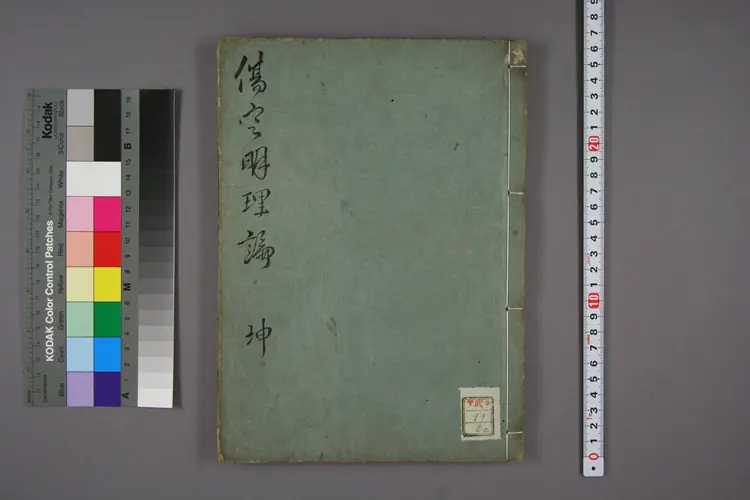 傷寒明理論 坤
99
Kodak
KODAK Color Control Patches
Blue
Cyan
Green
Yellow
Red
Magenta
White
3/Color
Black
A 1 2 3 4 5 6 M 8 9 10 11 12 13 14 15 B 17 18 19
0 1 2 3 4 5 6 7 8 9 10 1 2 3 4 5 6 7 8 9 20 1 2 3 4 5 6 7 8 9